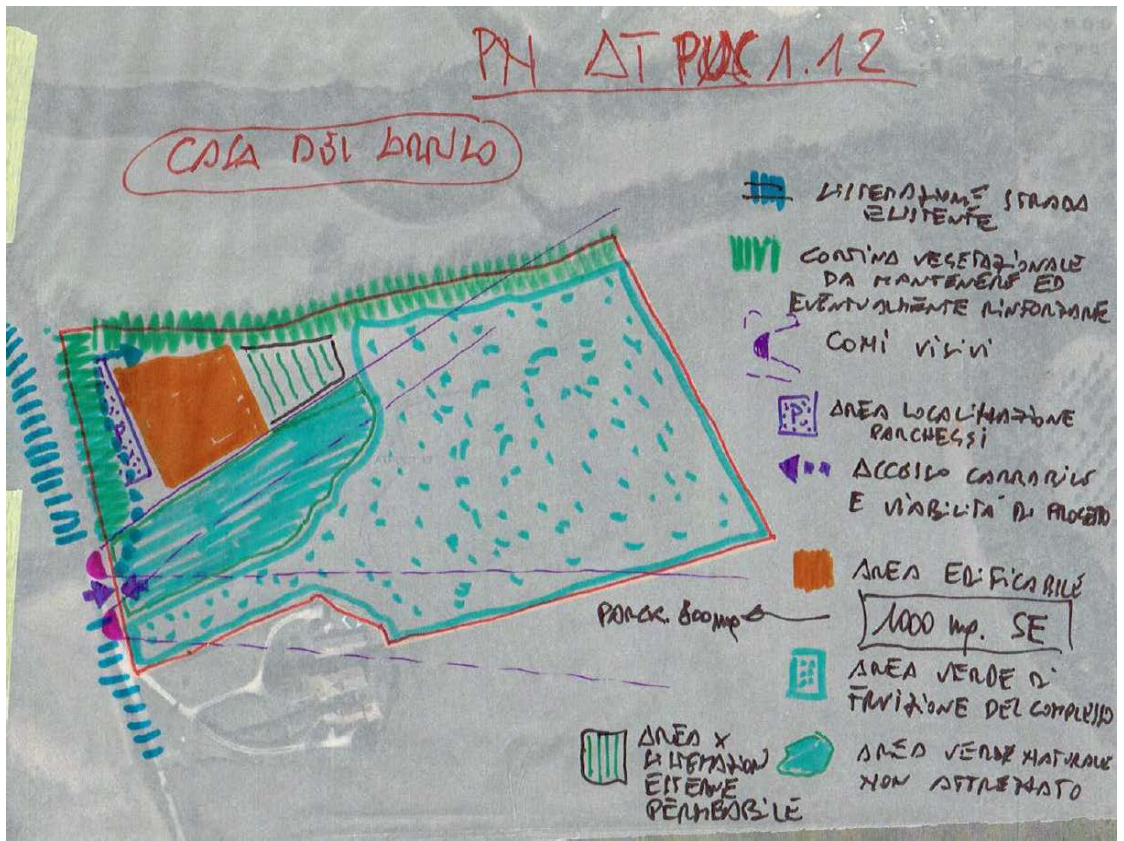 PN AT 1.12
CASA DEL
SISTEMAZIONE STRADA
ESISTENTE
CORTINA VEGETAZIONALE
DA MANTENERE ED
EVENTUALMENTE RINFORZARE
CONI VISIVI
P
P
AREA LOCALIZZAZIONE
PARCHEGGI
ACCESSO CARRABILE
E VIABILITÀ DI PROGETTO
AREA EDIFICABILE
PARCH. 800 mq
1000 mq. SE
AREA VERDE DI
FRUIZIONE DEL COMPLESSO
AREA X
SISTEMAZIONI
ESTERNE
PERMEABILE
AREA VERDE NATURALE
NON ATTREZZATO